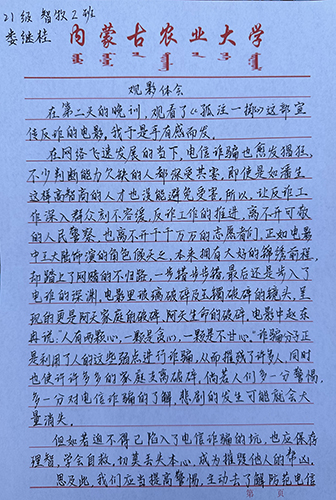 21级 智牧2班
娄继桂
内蒙古农业大学
观影体会
在第二天的晚训，观看了《孤注一掷》这部宣
传反诈的电影，我于是乎有感而发。
在网络飞速发展的当下，电信诈骗也愈发猖狂，
不少判断能力欠缺的人都深受其害，即使是如潘生
这样高智商的人才也没能避免受害，所以，让反诈工
作深入群众刻不容缓，反诈工作的推进，离不开可敬
的人民警察，也离不开千千万万的志愿者们，正如电影
中王大陆饰演的角色阿天，本来拥有大好的锦绣前程，
却踏上了网赌的不归路，一步错步步错，最后还是步入了
电诈的深渊，电影里玻璃破碎反玉镯破碎的镜头，呈
现的更是阿天家庭的破碎，阿天生命的破碎，电影中赵冬
冉说："人有两颗心，一颗是贪心，一颗是不甘心。"诈骗分子正
是利用了人的这些弱点进行诈骗，从而摧残了许多人，同时
也使许许多多的家庭支离破碎，倘若人们多一分警惕，
多一分对电信诈骗的了解，悲剧的发生可能就会大
量消失。
但如若迫不得已陷入了电信诈骗的坑，也应保存
理智，学会自救，切莫丢失本心，成为摧毁他人的帮凶。
思及此，我们应当提高警惕，主动去了解防范电信
第 页